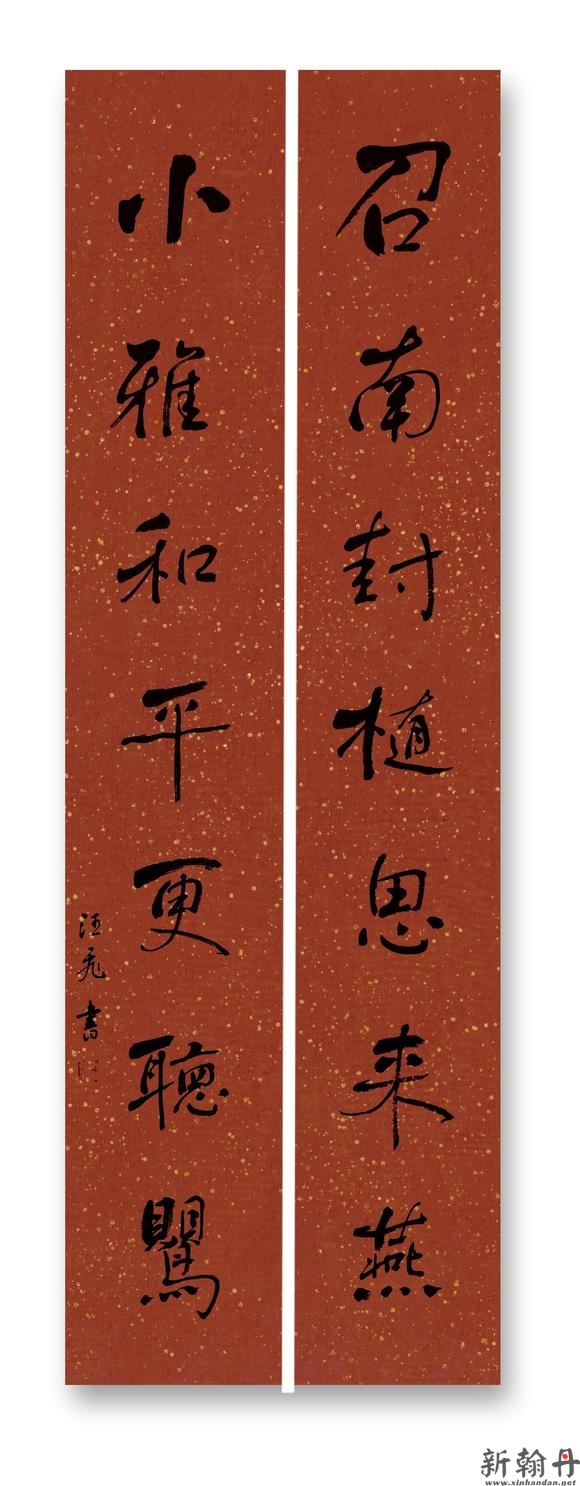 召南封植思来燕
小雅和平更聽鸎
汪 書
新翰丹
www.xinhandan.net